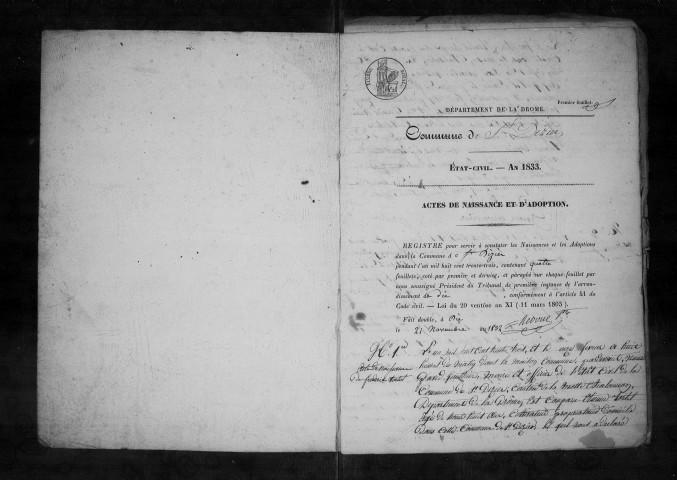 Premier feuillet.
DÉPARTEMENT DE LA DROME.
Commune de St Dizier
ÉTAT-CIVIL. — AN 1833.
ACTES DE NAISSANCE ET D'ADOPTION.
REGISTRE pour servir à constater les Naissances et les Adoptions
dans la Commune de St Dizier
pendant l'an mil huit cent trente-trois, contenant quatre
feuillets, coté par premier et dernier, et paraphé sur chaque feuillet par
nous soussigné Président du Tribunal de première instance de l'arron-
dissement de Die, conformément à l'article 41 du
Code civil. — Loi du 20 ventôse an XI (11 mars 1803).
Fait double, à Die
le 21 Novembre 1832
N° 1er
L'an mil huit cent trente trois, et le onze février a
heure dans la maison Commune, par devant
maire et officier de l'état civil de la
Commune de St Dizier, Canton de la Motte Chalancon,
Département de la Drôme, Est Comparu
âgé de trente huit ans, Cultivateur propriétaire Domicilié
Dans cette Commune de St Dizier, lequel nous a déclaré